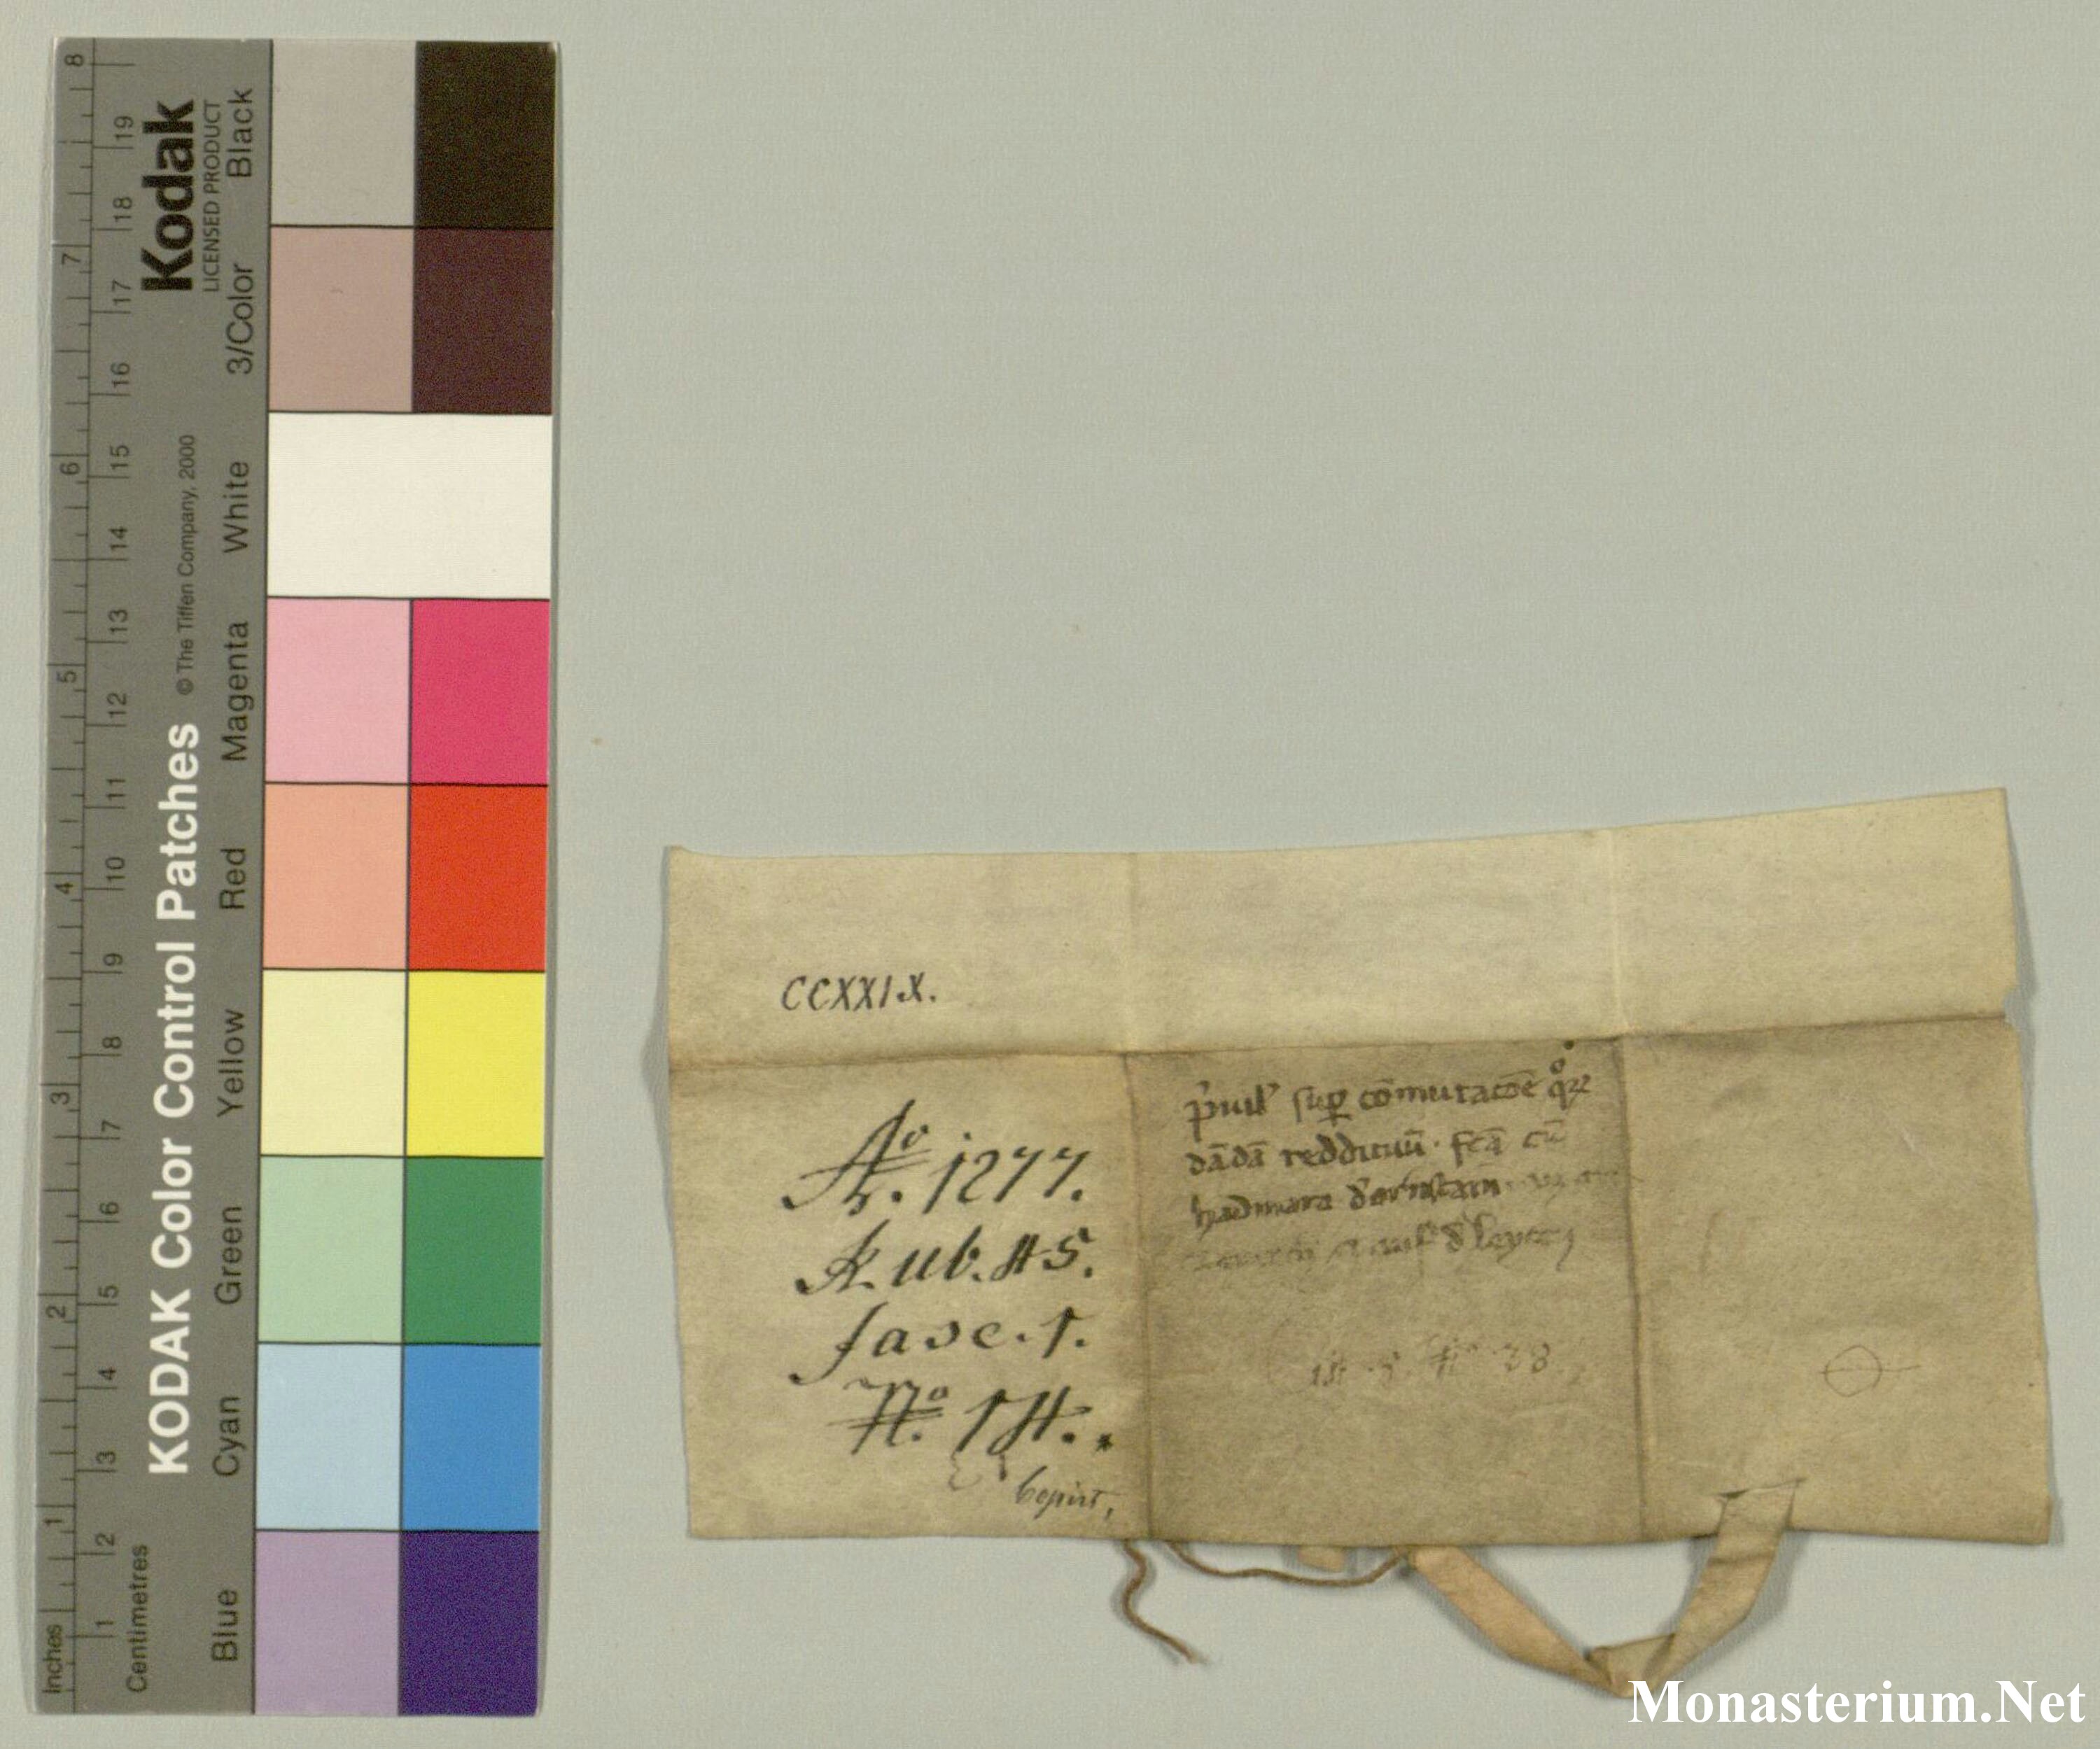 8
7
6
5
4
3
2
1
Inches
19
18
17
16
15
14
13
12
11
10
9
8
7
6
5
4
3
2
1
Centimetres
Kodak
LICENSED PRODUCT
KODAK Color Control Patches © The Tiffen Company, 2000
Black
3/Color
White
Magenta
Red
Yellow
Green
Cyan
Blue
CCXXIX.
Aº. 1277.
Rub. 45.
fasc. 1.
Nº. 14.
Copirt,
p̓uil̓ sup̱ cōmutacōe
dādā reddituū · fcā cū
hadmaro
Monasterium.Net